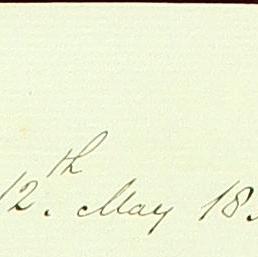 12th. May 18